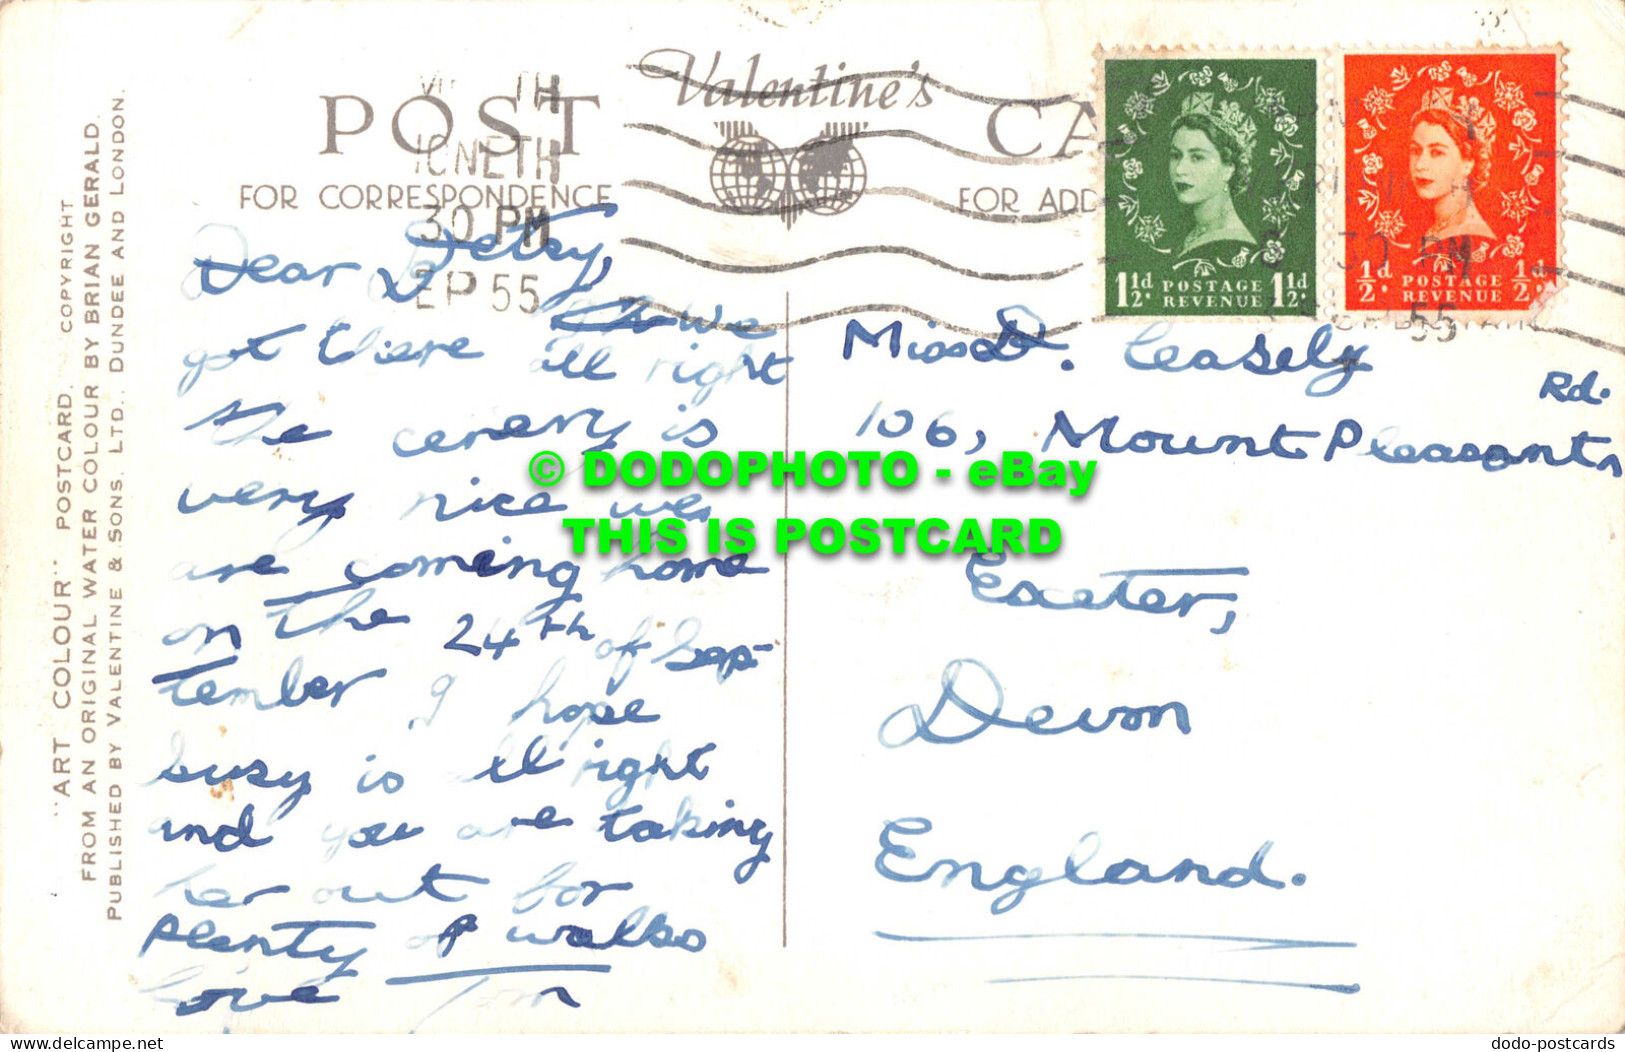 "ART COLOUR" POSTCARD. COPYRIGHT
FROM AN ORIGINAL WATER COLOUR BY BRIAN GERALD.
PUBLISHED BY VALENTINE & SONS, LTD., DUNDEE AND LONDON.
POST CA
Valentine's
FOR CORRESPONDENCE
FOR ADD
TH
NETH
30 PM
EP 55
30 PM
55
1½d. POSTAGE REVENUE 1½d.
½d. POSTAGE REVENUE ½d.
Dear Betsy,
got there we
all right
the cenery is
very nice we
are coming home
on the 24th of Sep-
tember I hope
busy is all right
and you are taking
her out for
plenty of walks
love Tom
Miss D. Ceasely
106, Mount Pleasant Rd.
Exeter,
Devon
England.
© DODOPHOTO - eBay
THIS IS POSTCARD
delcampe.net
dodo-postcards